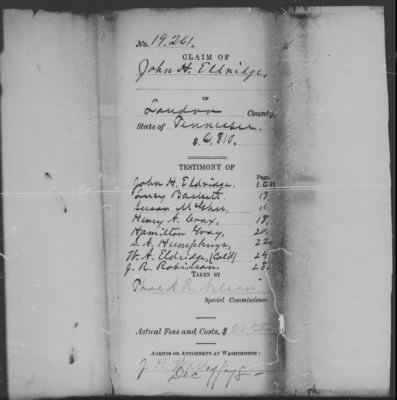 No. 19.261.
CLAIM OF
John H. Eldridge.
OF
Loudon County,
State of Tennessee.
$6,810.
TESTIMONY OF
Page.
John H. Eldridge.
Bassett. 17
Susan McGhee 16
Henry A. 18
Hamilton Gray, 20
S. A. Humphreys, 22
W. A. Eldridge, (Col'd) 24
J. R. Robinson. 28
TAKEN BY
A. R. Nelson
Special Commissioner.
Actual Fees and Costs, $
AGENTS OR ATTORNEYS AT WASHINGTON:
Dec